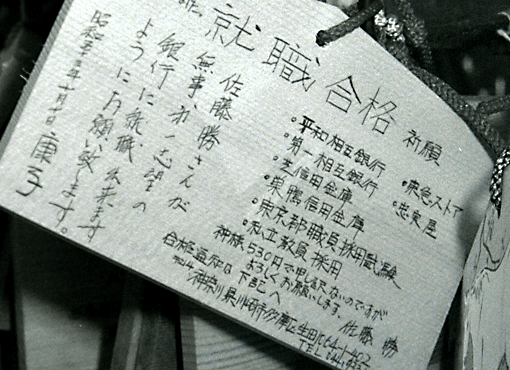 就職合格 祈願
佐藤勝さんが
無事、第一志望の
銀行に就職出来ます
ようにお願い致します。
康子
•平和相互銀行
•第一相互銀行
•芝信用金庫
•巣鴨信用金庫
•東京都職員採用試験
•私立教員採用
•東急ストア
•忠実屋
神様、530円で申し訳ないのですが
よろしくお願いします。 佐藤 勝
合格通知は下記へ
神奈川県川崎市多摩区生田
TEL